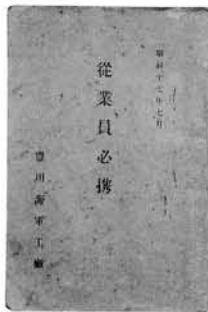 昭和十七年七月
從業員必携
豊川海軍工廠